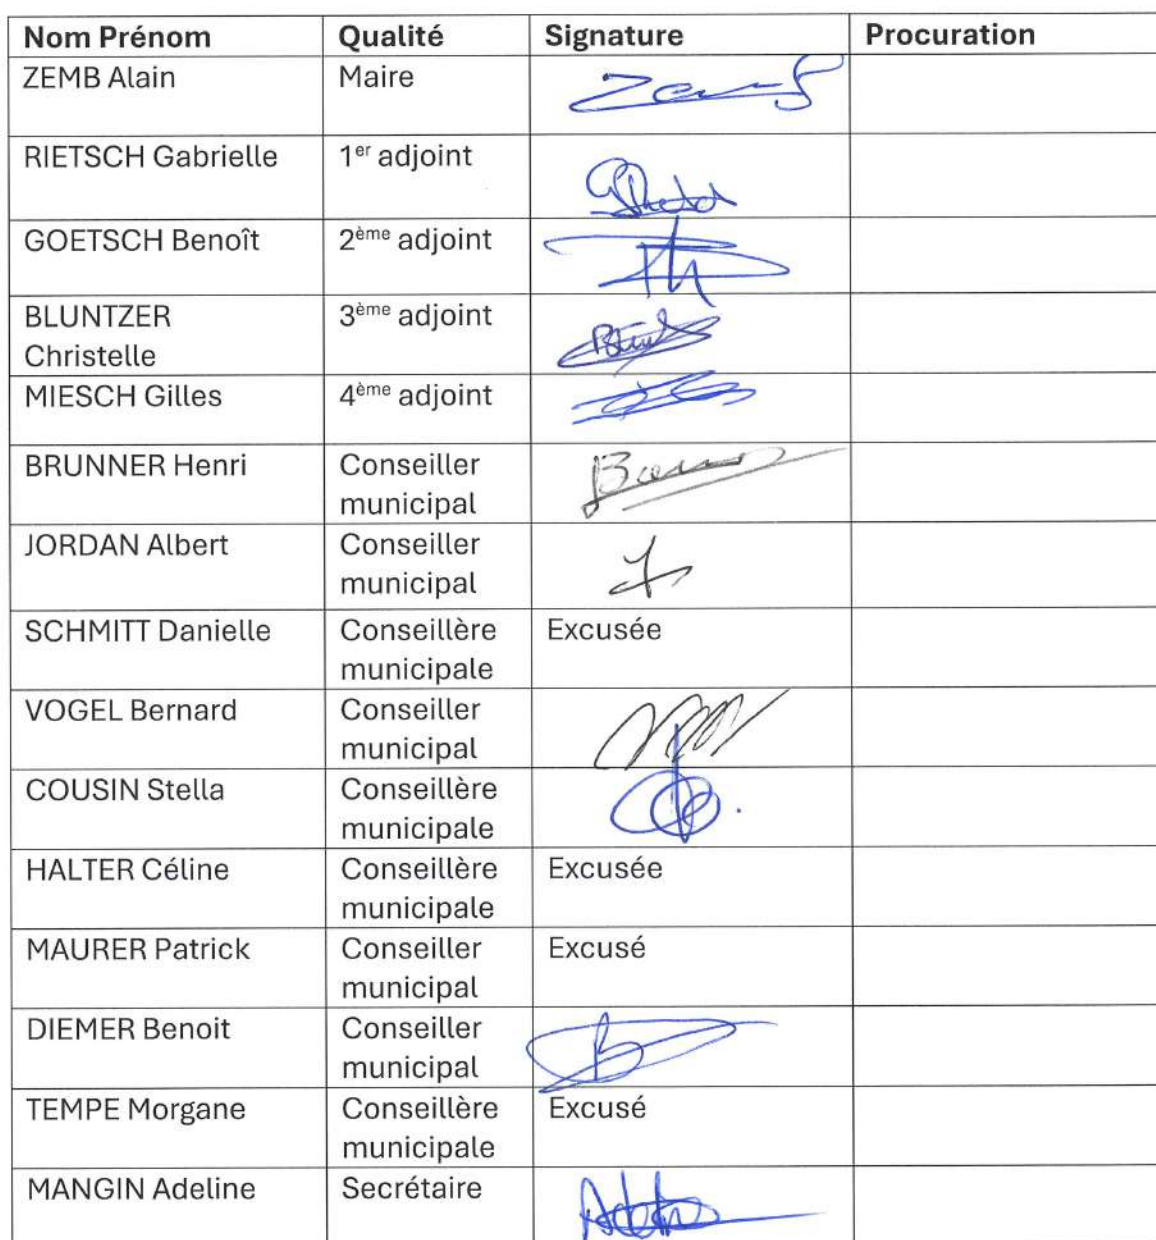 Nom Prénom Qualité Signature Procuration
ZEMB Alain Maire
RIETSCH Gabrielle 1er adjoint
GOETSCH Benoît 2ème adjoint
BLUNTZER 3ème adjoint
Christelle
MIESCH Gilles 4ème adjoint
BRUNNER Henri Conseiller
municipal
JORDAN Albert Conseiller
municipal
SCHMITT Danielle Conseillère Excusée
municipale
VOGEL Bernard Conseiller
municipal
COUSIN Stella Conseillère
municipale
HALTER Céline Conseillère Excusée
municipale
MAURER Patrick Conseiller Excusé
municipal
DIEMER Benoit Conseiller
municipal
TEMPE Morgane Conseillère Excusé
municipale
MANGIN Adeline Secrétaire